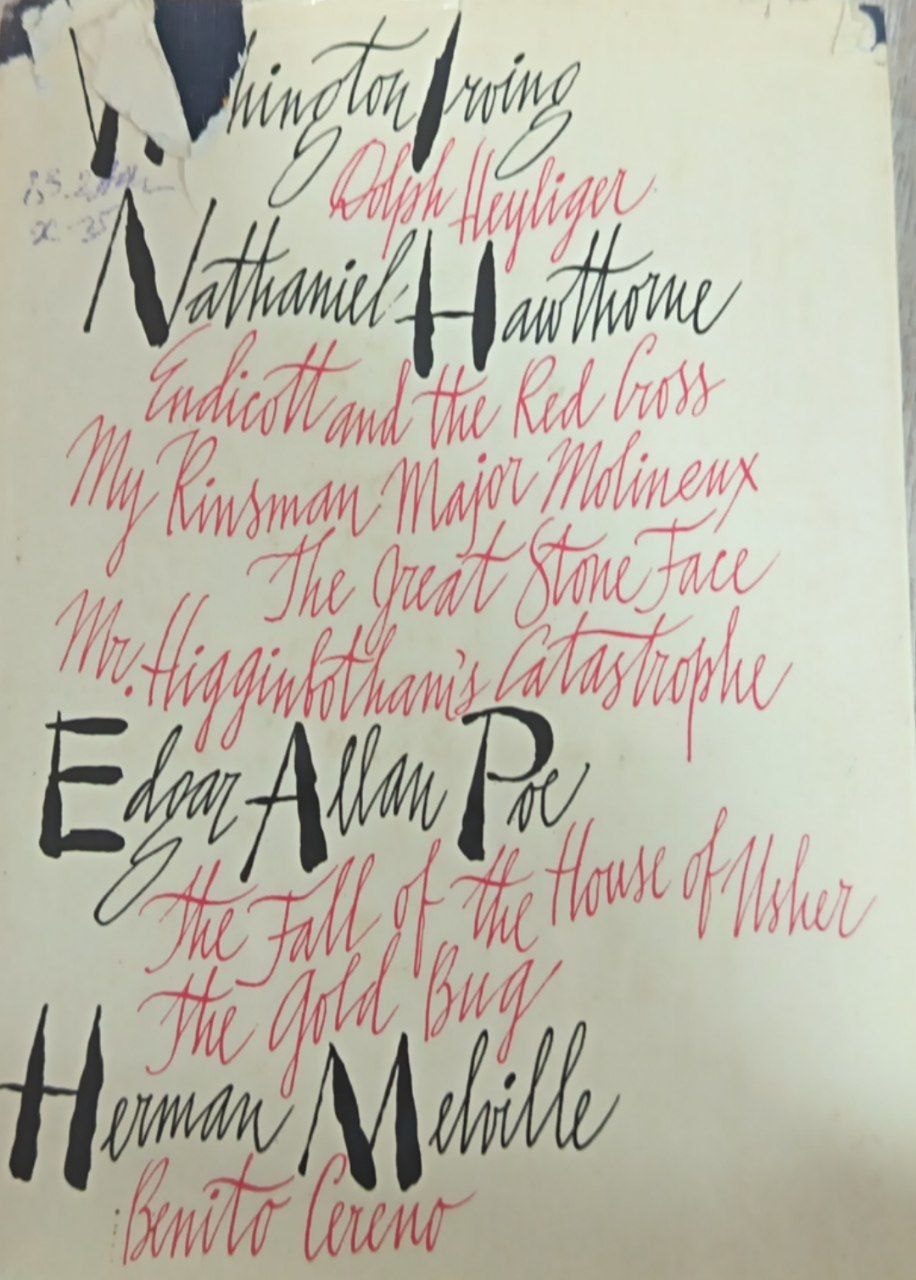 hington Irving
Dolph Heyliger
Nathaniel Hawthorne
Endicott and the Red Cross
My Kinsman Major Molineux
The Great Stone Face
Mr. Higginbotham's Catastrophe
Edgar Allan Poe
The Fall of the House of Usher
The Gold Bug
Herman Melville
Benito Cereno